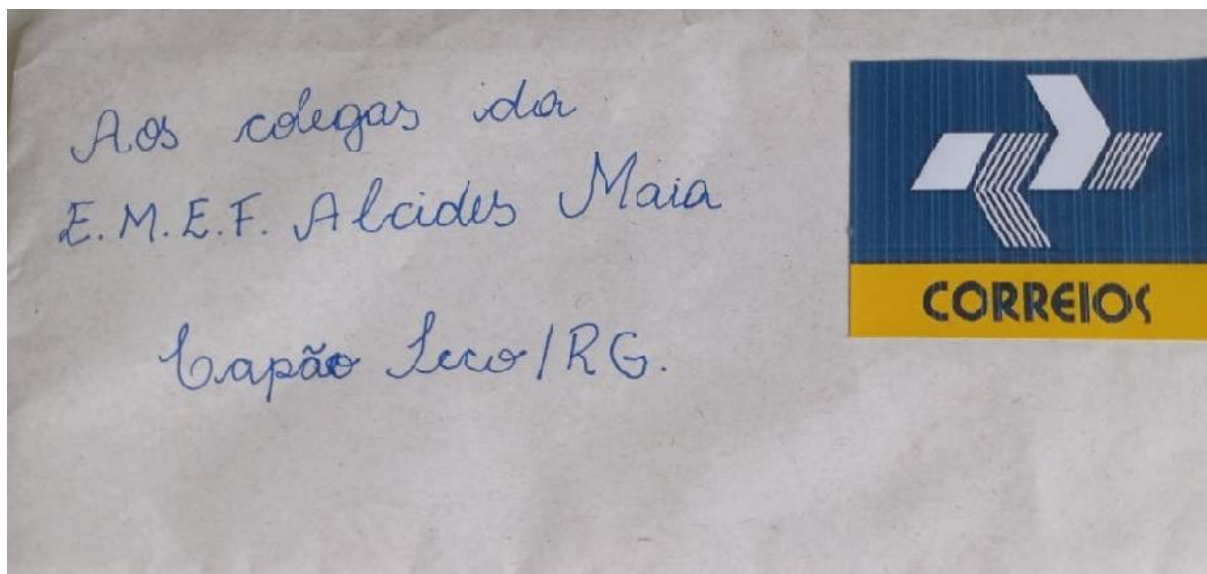 Aos colegas da
E.M.E.F. Alcides Maia
Capão Seco/RG.
CORREIOS